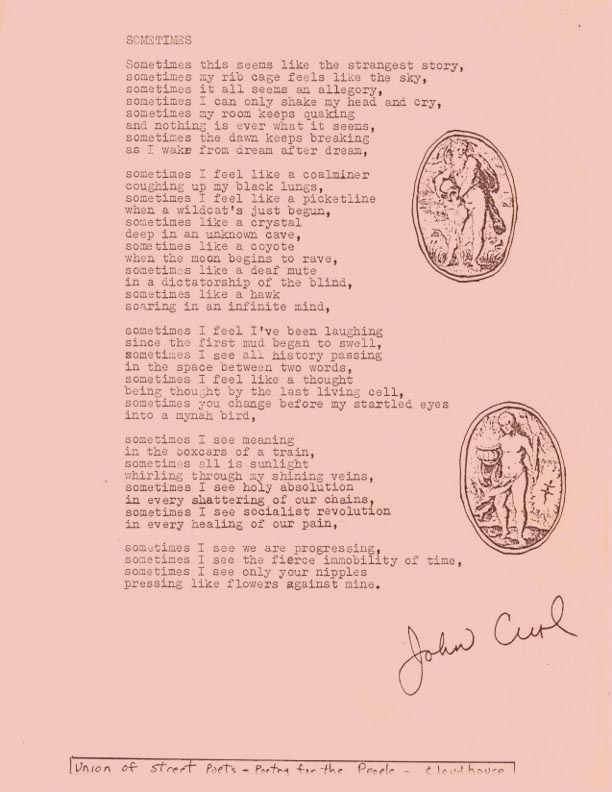 SOMETIMES
Sometimes this seems like the strangest story,
sometimes my rib cage feels like the sky,
sometimes it all seems an allegory,
sometimes I can only shake my head and cry,
sometimes my room keeps quaking
and nothing is ever what it seems,
sometimes the dawn keeps breaking
as I wake from dream after dream,
sometimes I feel like a coalminer
coughing up my black lungs,
sometimes I feel like a picketline
when a wildcat's just begun,
sometimes like a crystal
deep in an unknown cave,
sometimes like a coyote
when the moon begins to rave,
sometimes like a deaf mute
in a dictatorship of the blind,
sometimes like a hawk
soaring in an infinite mind,
sometimes I feel I've been laughing
since the first mud began to swell,
sometimes I see all history passing
in the space between two words,
sometimes I feel like a thought
being thought by the last living cell,
sometimes you change before my startled eyes
into a mynah bird,
sometimes I see meaning
in the boxcars of a train,
sometimes all is sunlight
whirling through my shining veins,
sometimes I see holy absolution
in every shattering of our chains,
sometimes I see socialist revolution
in every healing of our pain,
sometimes I see we are progressing,
sometimes I see the fierce immobility of time,
sometimes I see only your nipples
pressing like flowers against mine.
John Curl
Union of Street Poets - Poetry for the People - Cloudhouse